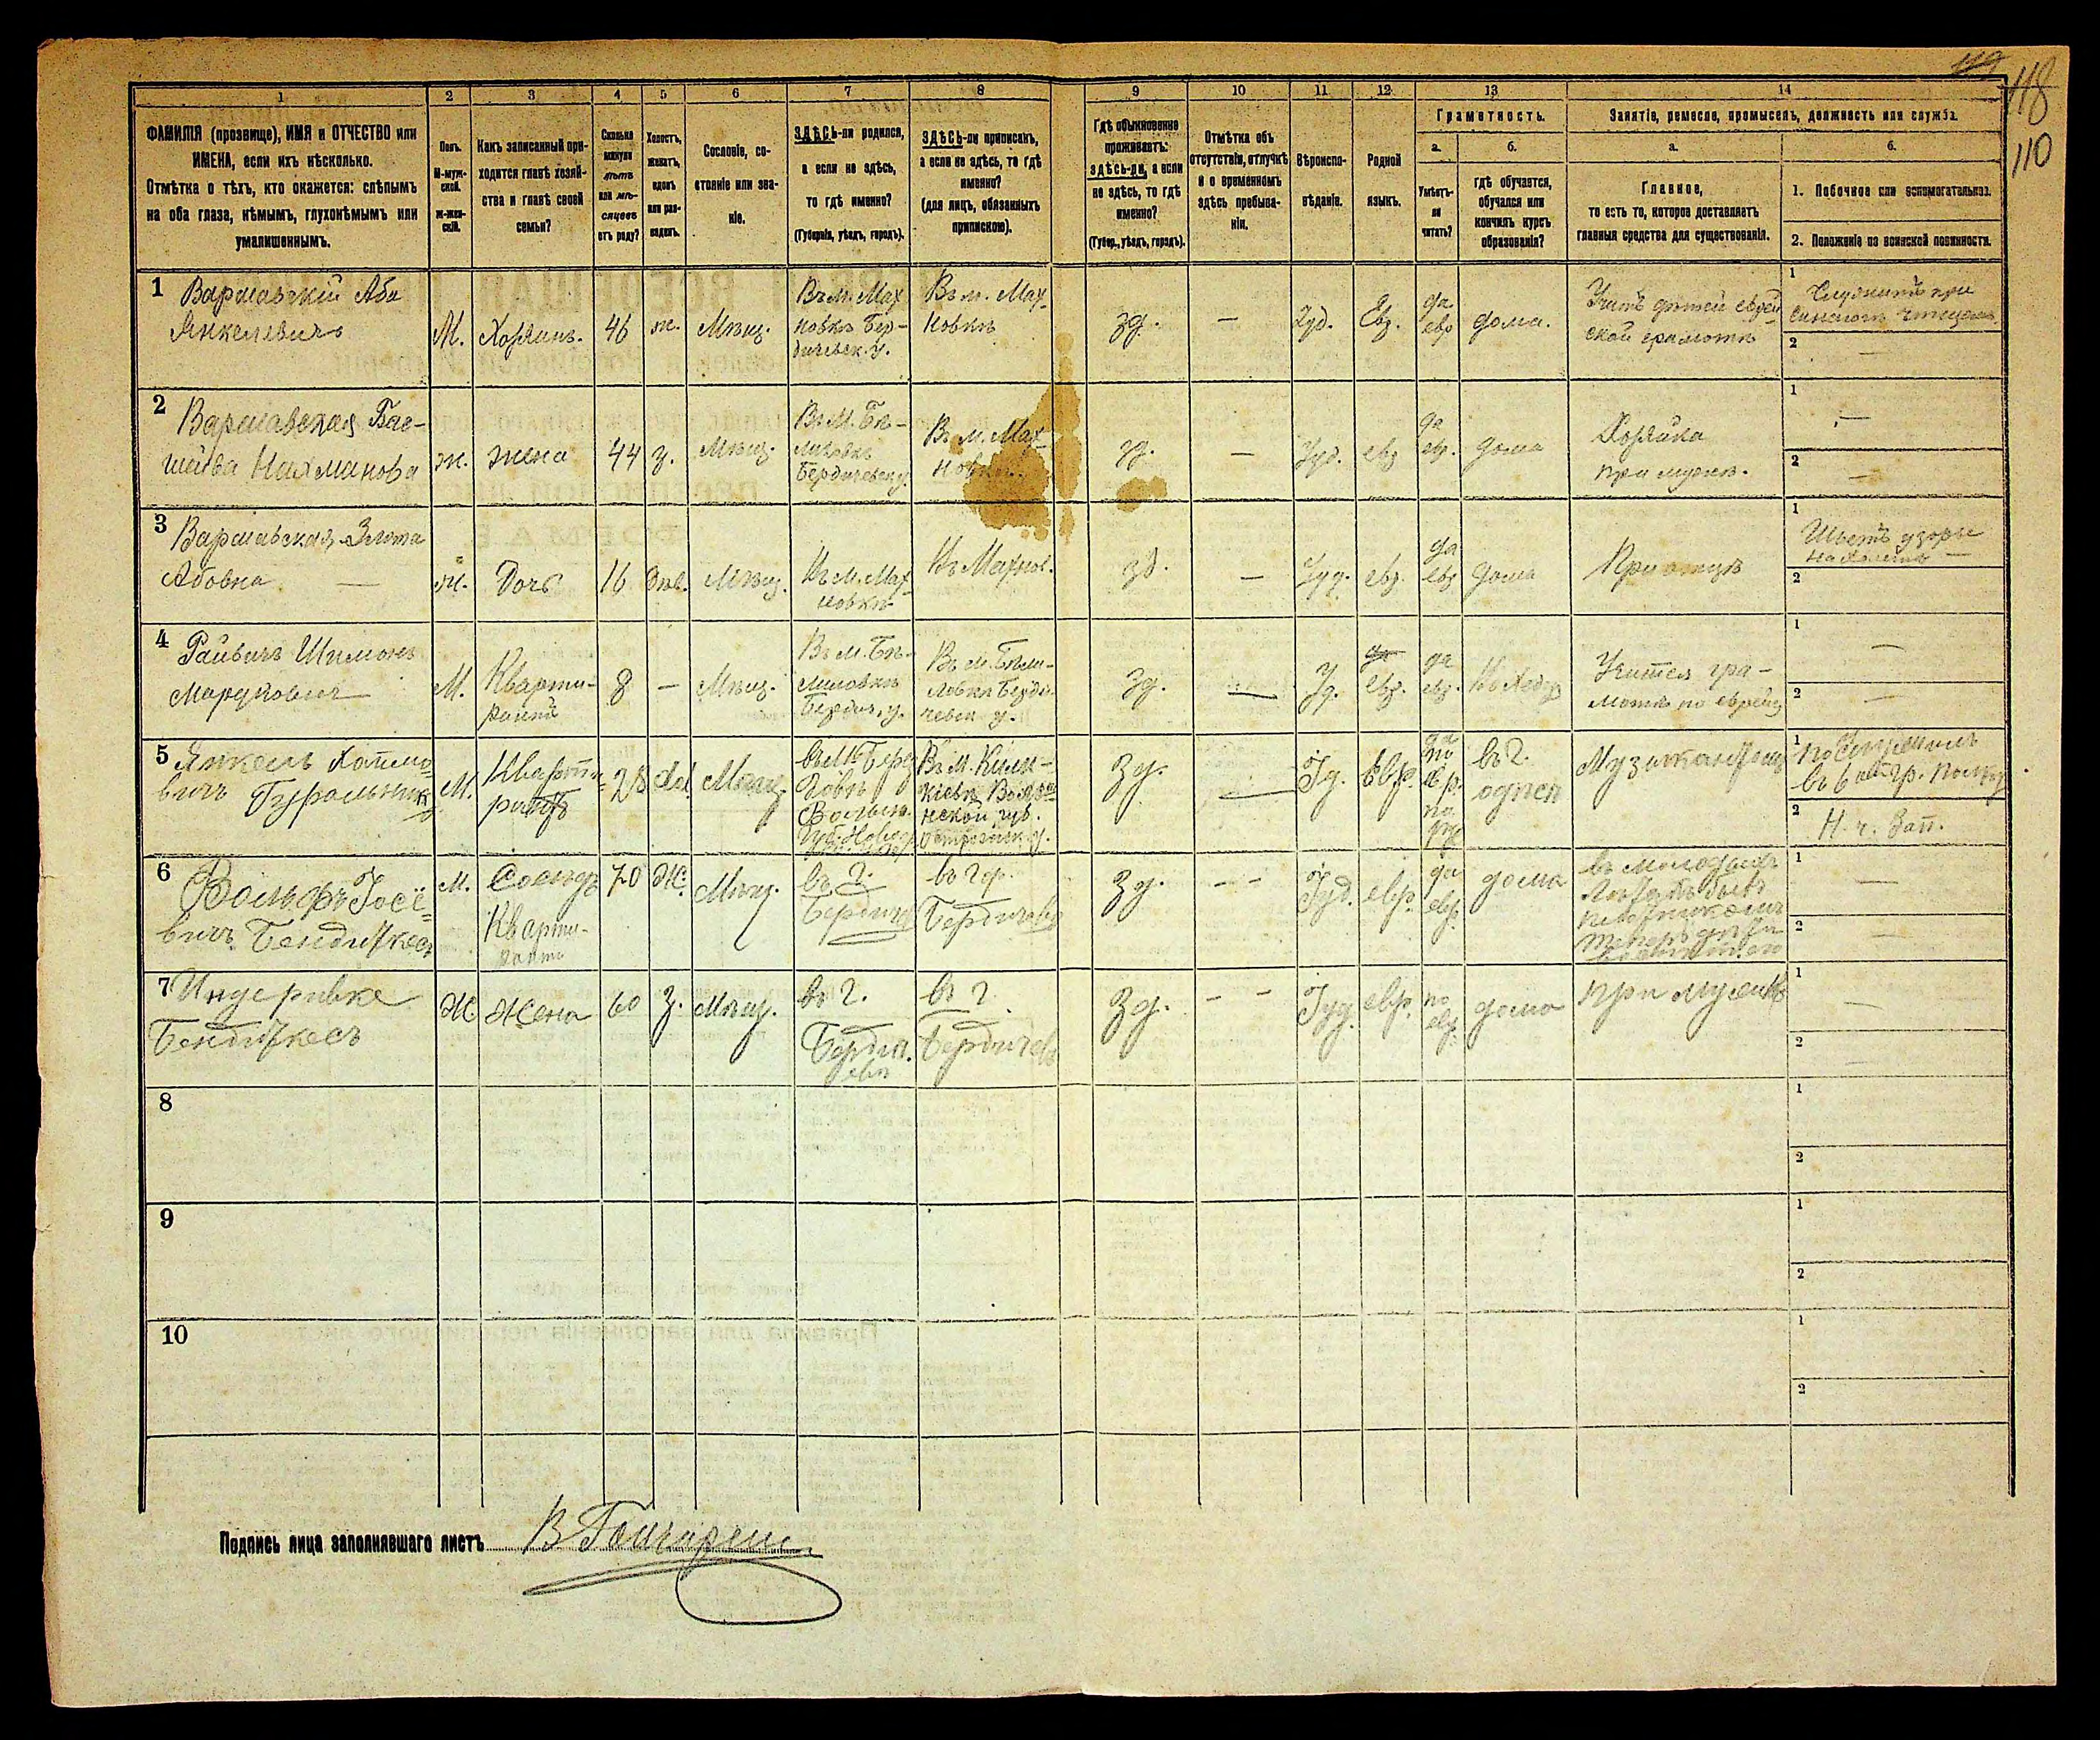 119
118
110
1
2
3
4
5
6
7
8
9
10
11
12
13
14
ФАМИЛІЯ (прозвище), ИМЯ и ОТЧЕСТВО или
ИМЕНА, если ихъ нѣсколько.
Отмѣтка о тѣхъ, кто окажется: слѣпымъ
на оба глаза, нѣмымъ, глухонѣмымъ или
умалишеннымъ.
Полъ.
М-муж-
ской.
ж-жен-
скій.
Какъ записанный при-
ходится главѣ хозяй-
ства и главѣ своей
семьи?
Сколько
минуло
лѣтъ
или мѣ-
сяцевъ
отъ роду?
Холостъ,
женатъ,
вдовъ
или раз-
веденъ.
Сословіе, со-
стояніе или зва-
ніе.
ЗДѢСЬ-ли родился,
а если не здѣсь,
то гдѣ именно?
(Губернія, уѣздъ, городъ).
ЗДѢСЬ-ли приписанъ,
а если не здѣсь, то гдѣ
именно?
(для лицъ, обязанныхъ
припискою).
Гдѣ обыкновенно
проживаетъ:
здѣсь-ли, а если
не здѣсь, то гдѣ
именно?
(Губер., уѣздъ, городъ).
Отмѣтка объ
отсутствіи, отлучкѣ
и о временномъ
здѣсь пребыва-
ніи.
Вѣроиспо-
вѣданіе.
Родной
языкъ.
Грамотность.
а.
б.
Умѣетъ-
ли
читать?
гдѣ обучается,
обучался или
кончилъ курсъ
образованія?
Занятіе, ремесло, промыселъ, должность или служба.
а.
б.
Главное,
то есть то, которое доставляетъ
главныя средства для существованія.
1. Побочное или вспомогательное.
2. Положеніе по воинской повинности.
1
Варшавскій Аба
Янкелевичъ
М.
Хозяинъ.
46
ж.
Мѣщ.
Въ м. Мах
новкѣ Бер-
дичевск. у.
Въ м. Мах-
новкѣ
зд.
—
Іуд.
Евр.
да
евр
дома.
Учитъ дѣтей еврей-
ской грамотѣ
1
Служитъ при
синагогѣ чтецомъ
2
—
2
Варшавская Бас-
шейва Нахманова
ж.
жена
44
з.
Мѣщ.
Въ м. Бѣ-
лиловкѣ
Бердичевск у.
Въ м. Мах-
новкѣ.
зд.
—
Іуд.
евр
да
евр.
дома
Хозяйка
при мужѣ.
1
—
2
—
3
Варшавская Злота
Абовна —
ж.
Дочь
16
Дѣв.
Мѣщ.
Въ м. Мах-
новкѣ
Въ Махнов.
зд.
—
Іуд.
евр.
да
евр
дома
При отцѣ
1
Шьетъ узоры
2
4
Шимонъ
М.
Кварти-
рантъ
8
—
Мѣщ.
Въ м. Бѣ-
лиловкѣ
Бердич. у.
Въ м. Бѣли-
ловкѣ Берди-
чевск у.
зд.
—
евр.
да
евр.
Въ Хедерѣ
Учится гра-
мотѣ по еврейс
1
—
2
—
5
Янкель
М.
Кварти-
рантъ
28
Хол.
Мѣщ.
Зд.
—
Іуд.
Евр.
въ г.
Музыкантъ
1
2
Н. ч. Зап.
6
Вольфъ Іосе-
вичъ Бендиткесъ
М.
Сосѣдъ
Кварти-
рантъ
70
Ж.
Мѣщ.
въ г.
Бердич
въ гр.
Бердичевѣ
Зд.
— —
Іуд.
евр.
да
евр.
дома
1
—
2
—
7
Бендиткесъ
Ж
Жена
60
З.
Мѣщ.
въ г.
Бердич.
евѣ
въ г.
Бердичевѣ
Зд.
— —
Іуд.
евр.
по
евр.
дома
при мужѣ
1
—
2
8
1
2
9
1
2
10
1
2
Подпись лица заполнявшаго листъ